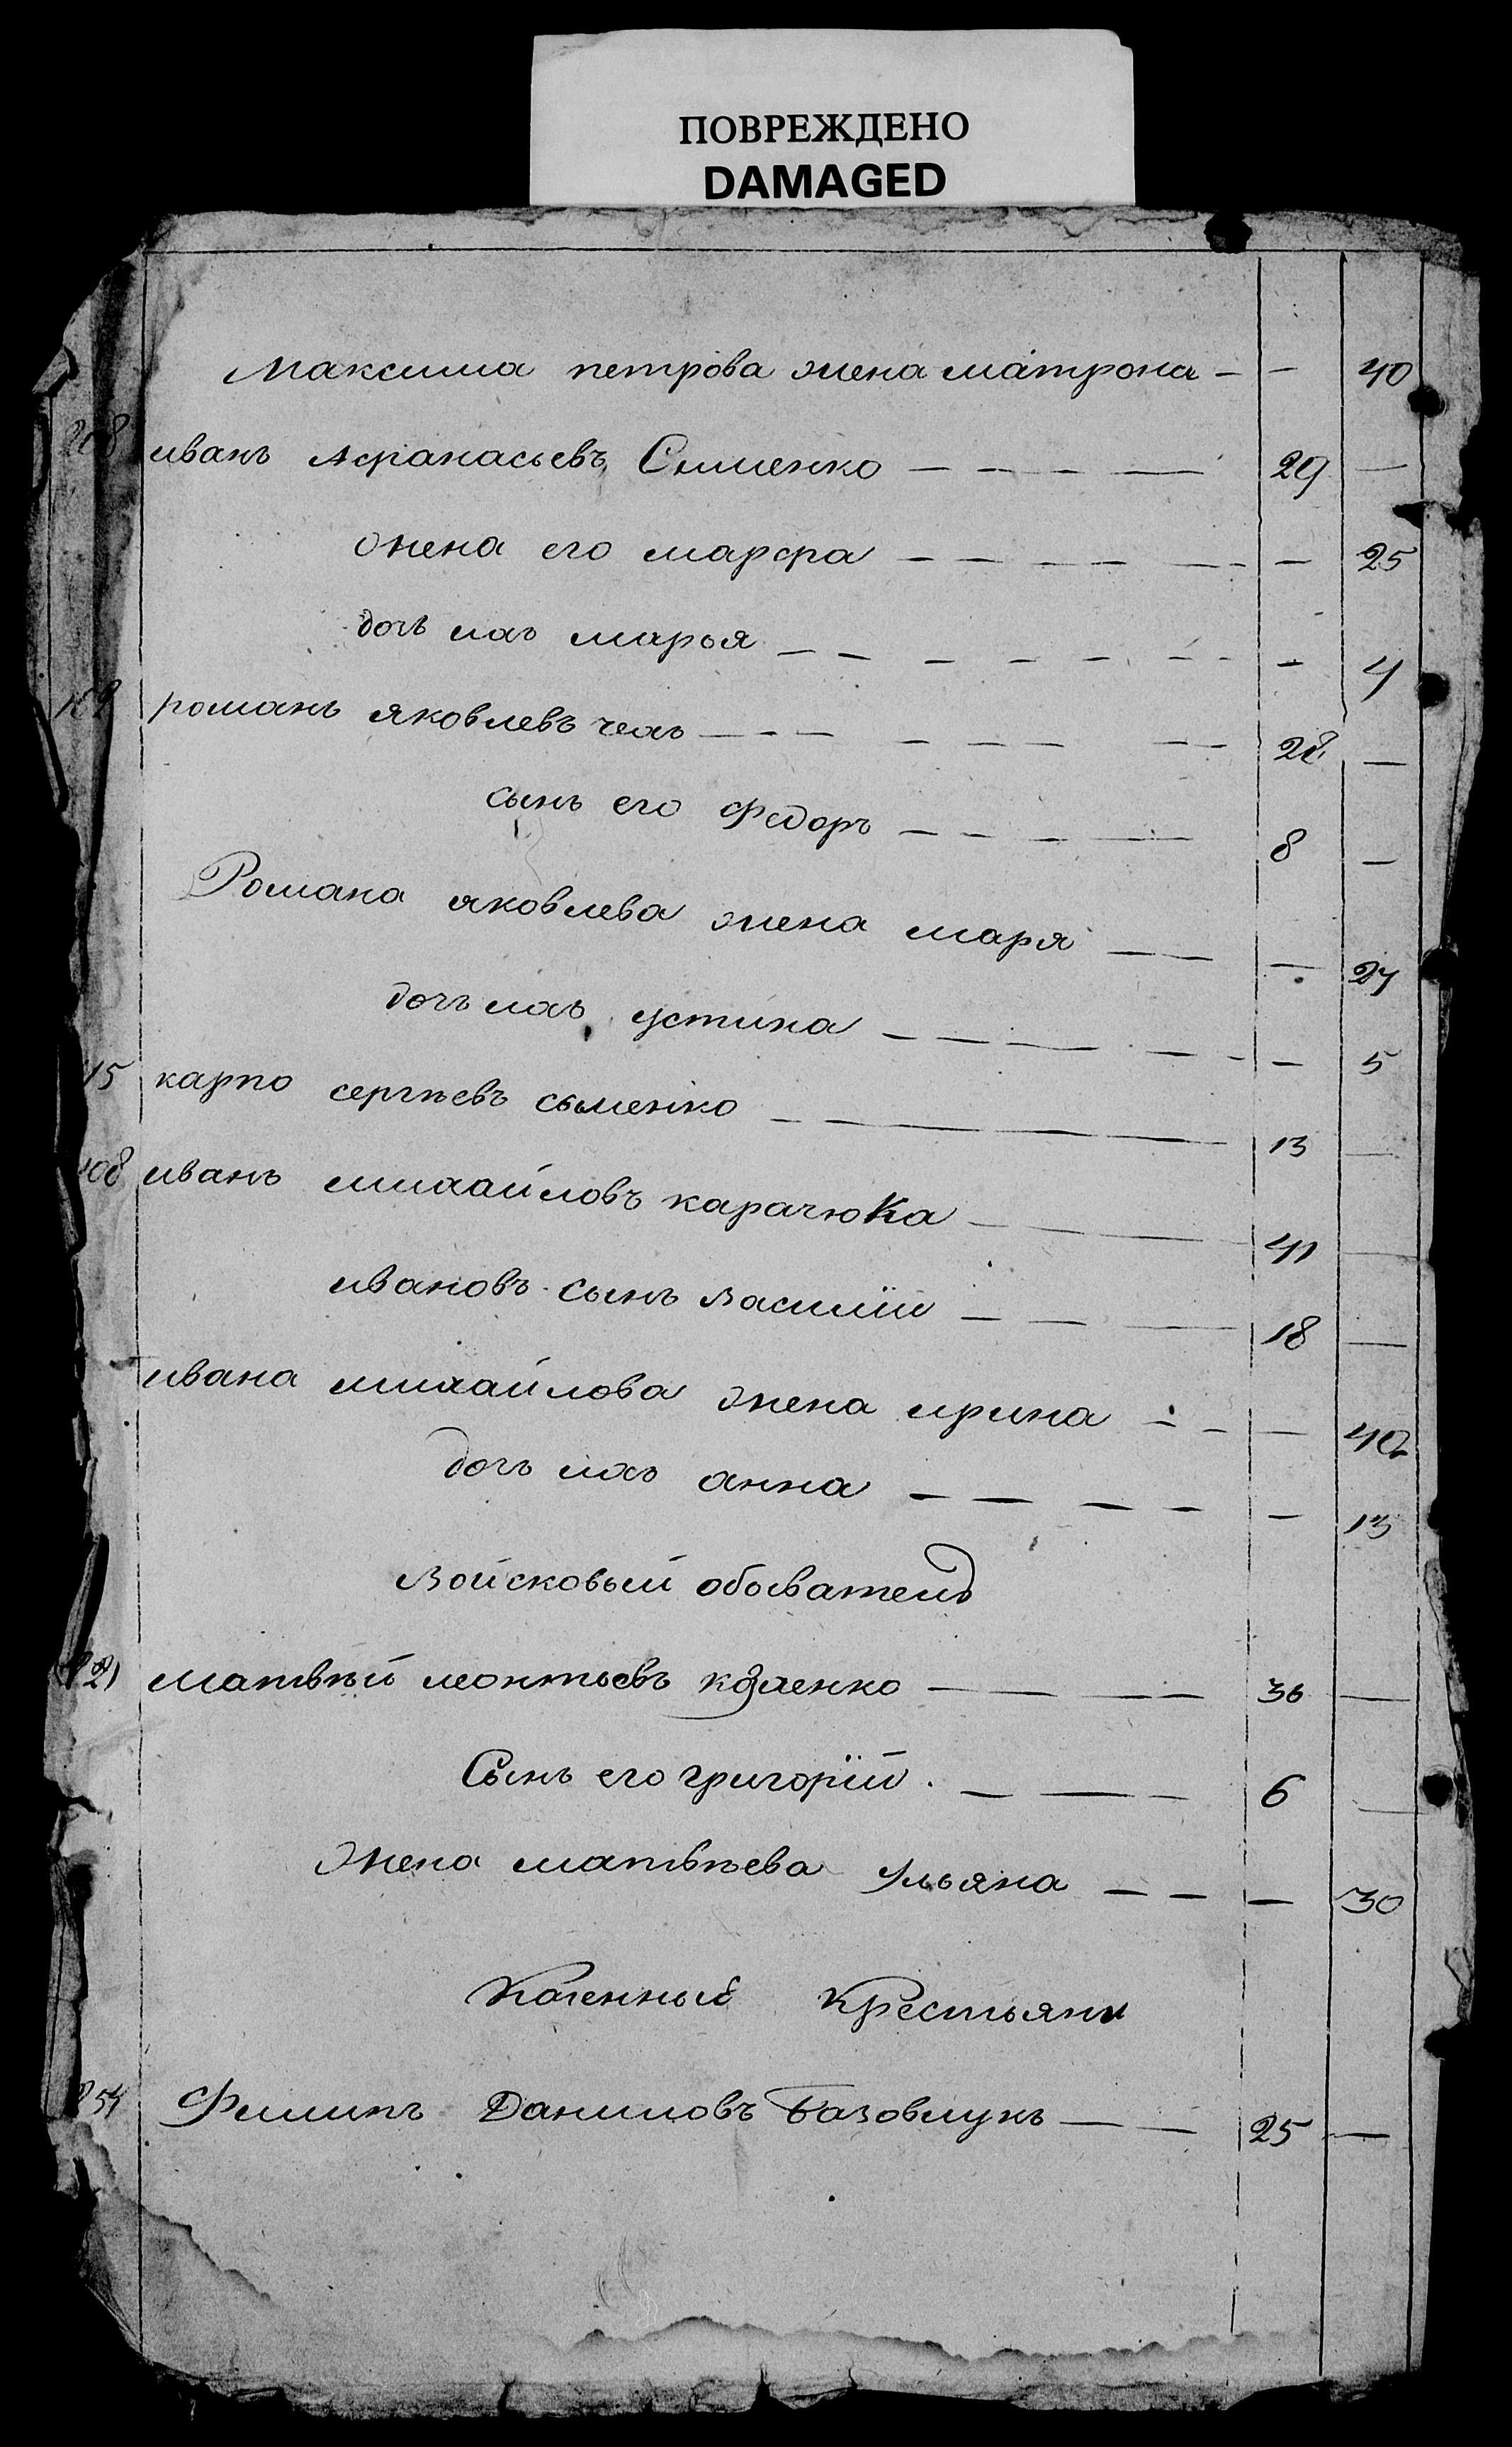 ПОВРЕЖДЕНО
DAMAGED
Максима петрова жена матрона - - 40
иванъ Афанасьевъ Сыменко - - - - 29 -
жена его марфа - - - - - - 25
дочь ихъ марья - - - - - - 4
романъ яковлевъ чехъ - - - - - - 28 -
сынъ его Федоръ - - - - 8 -
Романа яковлева жена маря - - - 27
дочь ихъ устина - - - - - - 5
15 карпо сергѣевъ сыменко - - - 13 -
108 иванъ михайловъ карачюка - - 41 -
ивановъ сынъ василій - - - 18 -
ивана михайлова жена ирина - - - 40
дочь ихъ анна - - - - - 13
Войсковый обыватель
матвѣй леонтьевъ - - - - 36 -
Сынъ его григорій. - - - 6 -
жена матвѣева Ульяна - - - 30
Казенный Крестьяни
254 Филипъ Даниловъ Базовлукъ - - 25 -